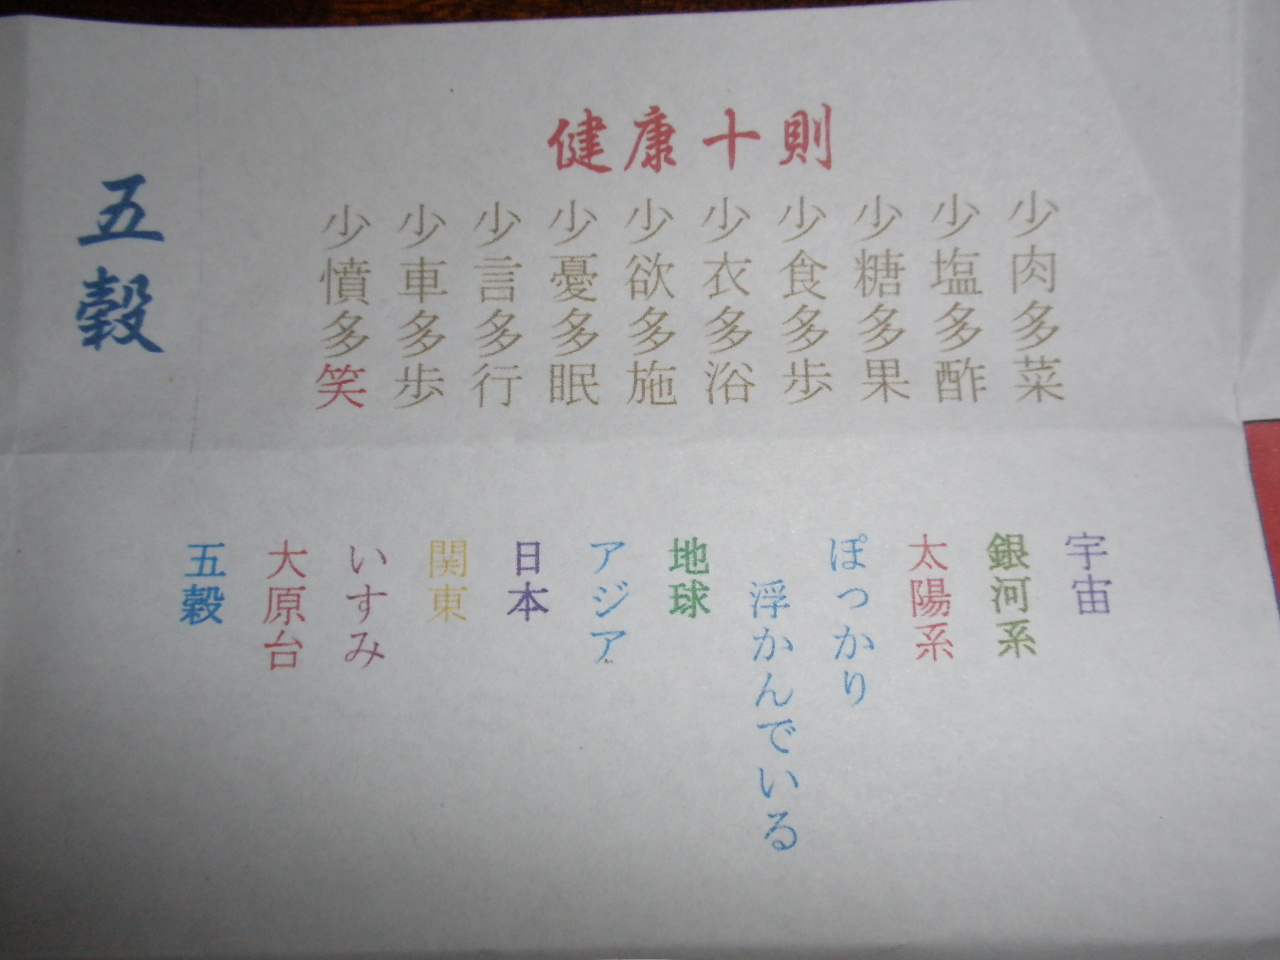 健康十則
少肉多菜
少塩多酢
少糖多果
少食多歩
少衣多浴
少欲多施
少憂多眠
少言多行
少車多歩
少憤多笑
五穀
宇宙
銀河系
太陽系
ぽっかり
浮かんでいる
地球
アジア
日本
関東
いすみ
大原台
五穀